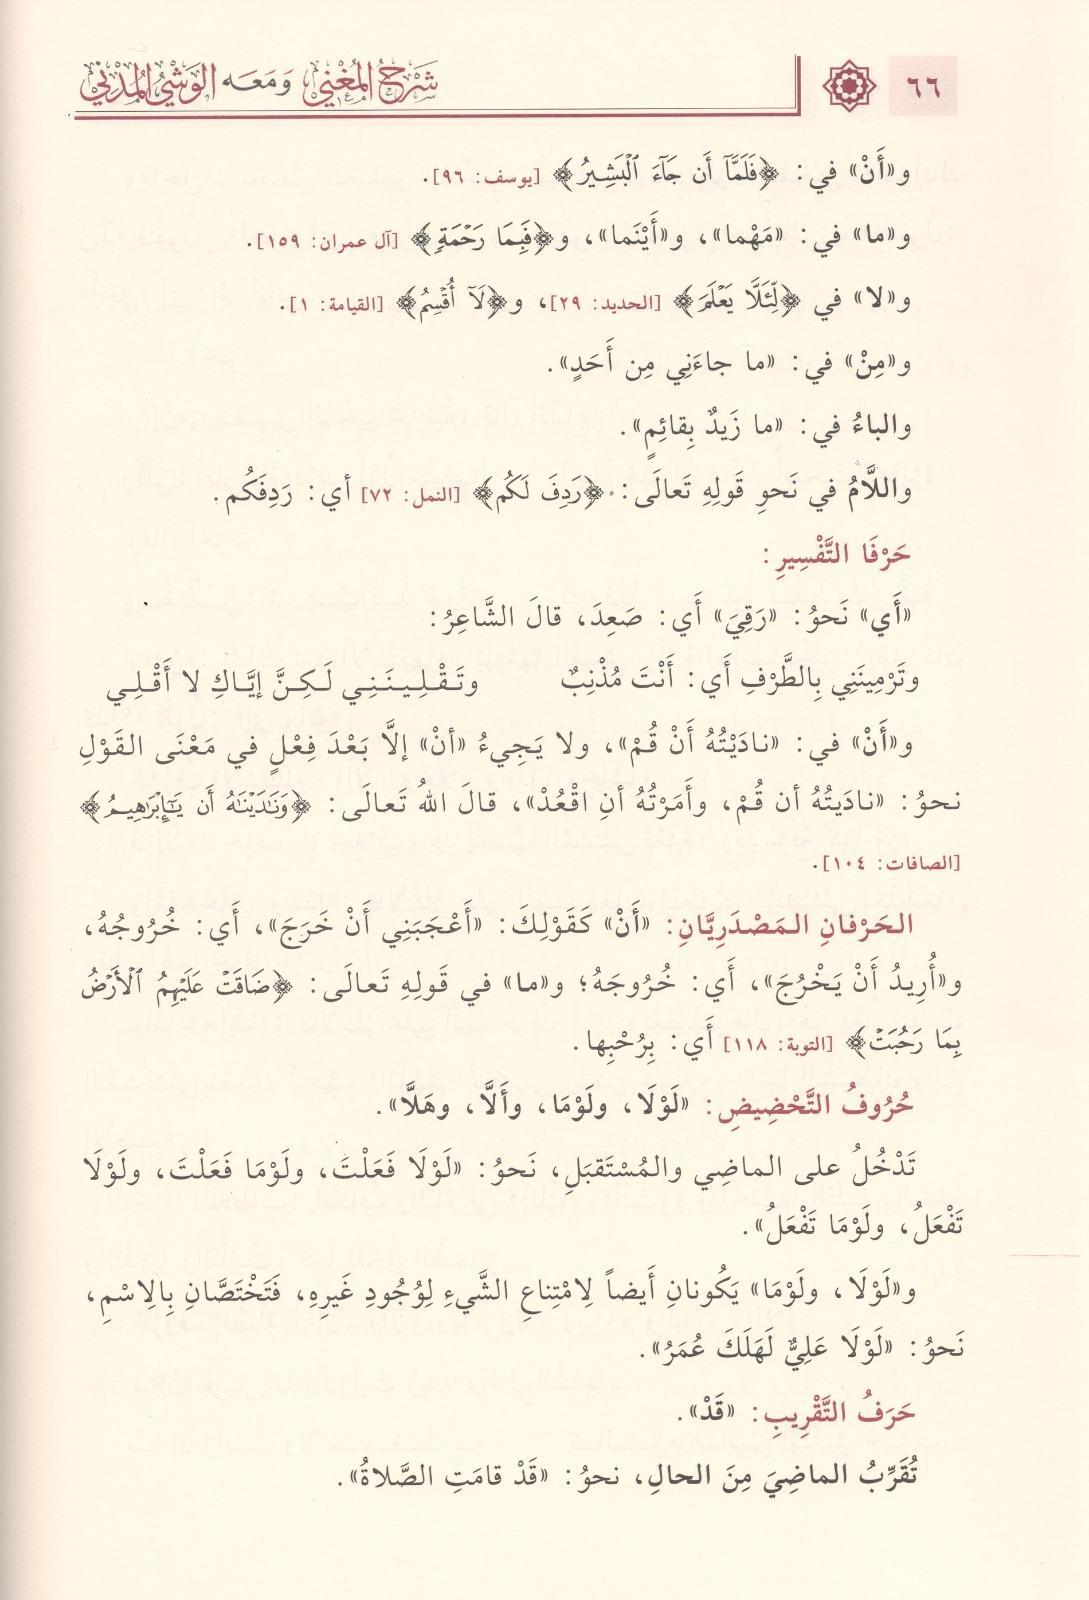 ٦٦
شَرْحُ المُغْنِي وَمَعَه الوَشْيُ المُدْنِي
و«أَنْ» في: ﴿فَلَمَّآ أَن جَآءَ ٱلْبَشِيرُ﴾ [يوسف: ٩٦].
و«ما» في: «مَهْما»، و«أَيْنَما»، و﴿فَبِمَا رَحْمَةٍ﴾ [آل عمران: ١٥٩].
و«لا» في ﴿لِّئَلَّا يَعْلَمَ﴾ [الحديد: ٢٩]، و﴿لَآ أُقْسِمُ﴾ [القيامة: ١].
و«مِنْ» في: «ما جاءَنِي مِن أَحَدٍ».
والباءُ في: «ما زَيدٌ بِقائِمٍ».
واللَّامُ في نَحوِ قَولِهِ تَعالَى: ﴿رَدِفَ لَكُم﴾ [النمل: ٧٢] أي: رَدِفَكُم.
حَرْفَا التَّفْسِيرِ:
«أَي» نَحوُ: «رَقِيَ» أَي: صَعِدَ، قالَ الشَّاعِرُ:
وتَرْمِينَنِي بِالطَّرْفِ أَي: أَنْتَ مُذْنِبٌ وتَقْلِينَنِي لَكِنَّ إيَّاكِ لا أَقْلِي
و«أَنْ» في: «نادَيْتُهُ أَنْ قُمْ»، ولا يَجِيءُ «أنْ» إلَّا بَعْدَ فِعْلٍ في مَعْنَى القَوْلِ
نحوُ: «نادَيتُهُ أن قُمْ، وأَمَرْتُهُ أنِ اقْعُدْ»، قالَ اللهُ تَعالَى: ﴿وَنَٰدَيْنَٰهُ أَن يَٰٓإِبْرَٰهِيمُ﴾
[الصافات: ١٠٤].
الحَرْفانِ المَصْدَرِيَّانِ: «أَنْ» كَقَوْلِكَ: «أَعْجَبَنِي أَنْ خَرَجَ»، أَي: خُرُوجُهُ،
و«أُرِيدُ أَنْ يَخْرُجَ»، أَي: خُرُوجَهُ؛ و«ما» في قَولِهِ تَعالَى: ﴿ضَاقَتْ عَلَيْهِمُ ٱلْأَرْضُ
بِمَا رَحُبَتْ﴾ [التوبة: ١١٨] أَي: بِرُحْبِها.
حُرُوفُ التَّحْضِيضِ: «لَوْلَا، ولَوْمَا، وأَلَّا، وهَلَّا».
تَدْخُلُ على الماضِي والمُسْتَقبَلِ، نَحوُ: «لَوْلَا فَعَلْتَ، ولَوْمَا فَعَلْتَ، ولَوْلَا
تَفْعَلُ، ولَوْمَا تَفْعَلُ».
و«لَوْلَا، ولَوْمَا» يَكُونانِ أَيضاً لِامْتِناعِ الشَّيءِ لِوُجُودِ غَيرِهِ، فَتَخْتَصَّانِ بِالِاسْمِ،
نَحوُ: «لَوْلَا عَلِيٌّ لَهَلَكَ عُمَرُ».
حَرَفُ التَّقْرِيبِ: «قَدْ».
تُقَرِّبُ الماضِيَ مِنَ الحالِ، نحوُ: «قَدْ قامَتِ الصَّلاةُ».